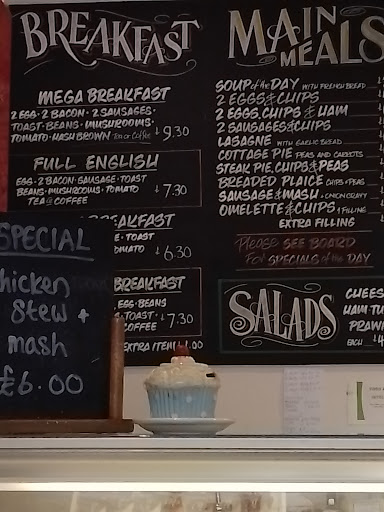 BREAKFAST
MEGA BREAKFAST
2 EGG · 2 BACON · 2 SAUSAGES ·
TOAST · BEANS · MUSHROOMS ·
TOMATO · HASH BROWN Tea or Coffee £9.30
FULL ENGLISH
EGG · 2 BACON · SAUSAGE · TOAST
BEANS · MUSHROOMS · TOMATO
TEA or COFFEE £7.30
BREAKFAST
E · TOAST
OMATO £6.30
BREAKFAST
EGG · BEANS
TOAST ·
COFFEE £7.30
EXTRA ITEM £1.00
MAIN
MEALS
SOUP of the DAY WITH FRENCH BREAD
2 EGGS & CHIPS
2 EGGS, CHIPS & HAM
2 SAUSAGES & CHIPS
LASAGNE WITH GARLIC BREAD
COTTAGE PIE PEAS AND CARROTS
STEAK PIE, CHIPS & PEAS
BREADED PLAICE CHIPS & PEAS
SAUSAGE & MASH + ONION GRAVY
OMELETTE & CHIPS 1 FILLING
EXTRA FILLING
Please SEE BOARD
For SPECIALS of the DAY
SALADS
CHEES
HAM TU
PRAWN
EACH £4
SPECIAL
hicken
Stew +
mash
£6.00